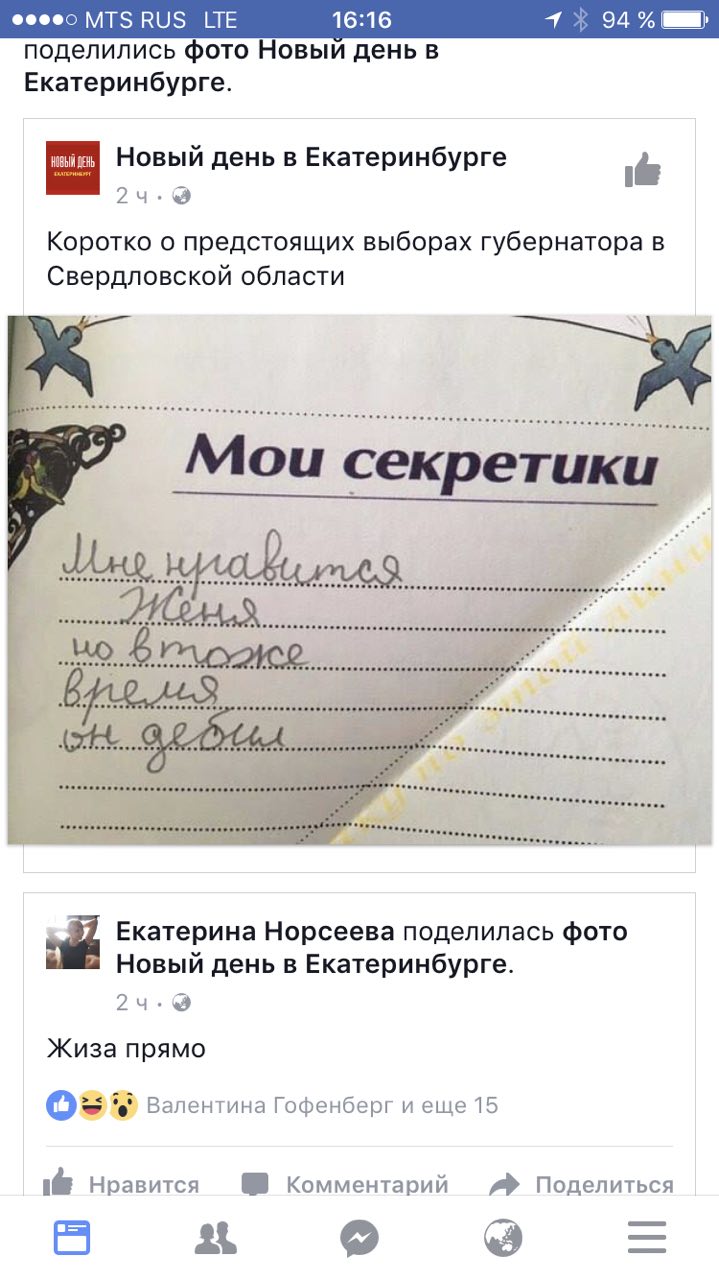 MTS RUS LTE 16:16 94 %
поделились фото Новый день в
Екатеринбурге.
НОВЫЙ ДЕНЬ
ЕКАТЕРИНБУРГ
Новый день в Екатеринбурге
2 ч
Коротко о предстоящих выборах губернатора в
Свердловской области
Мои секретики
Мне нравится
Женя
но втоже
время
он дебил
по этой линии
Екатерина Норсеева поделилась фото
Новый день в Екатеринбурге.
2 ч
Жиза прямо
Валентина Гофенберг и еще 15
Нравится Комментарий Поделиться